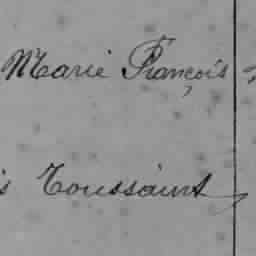 Marie François
s Toussaint